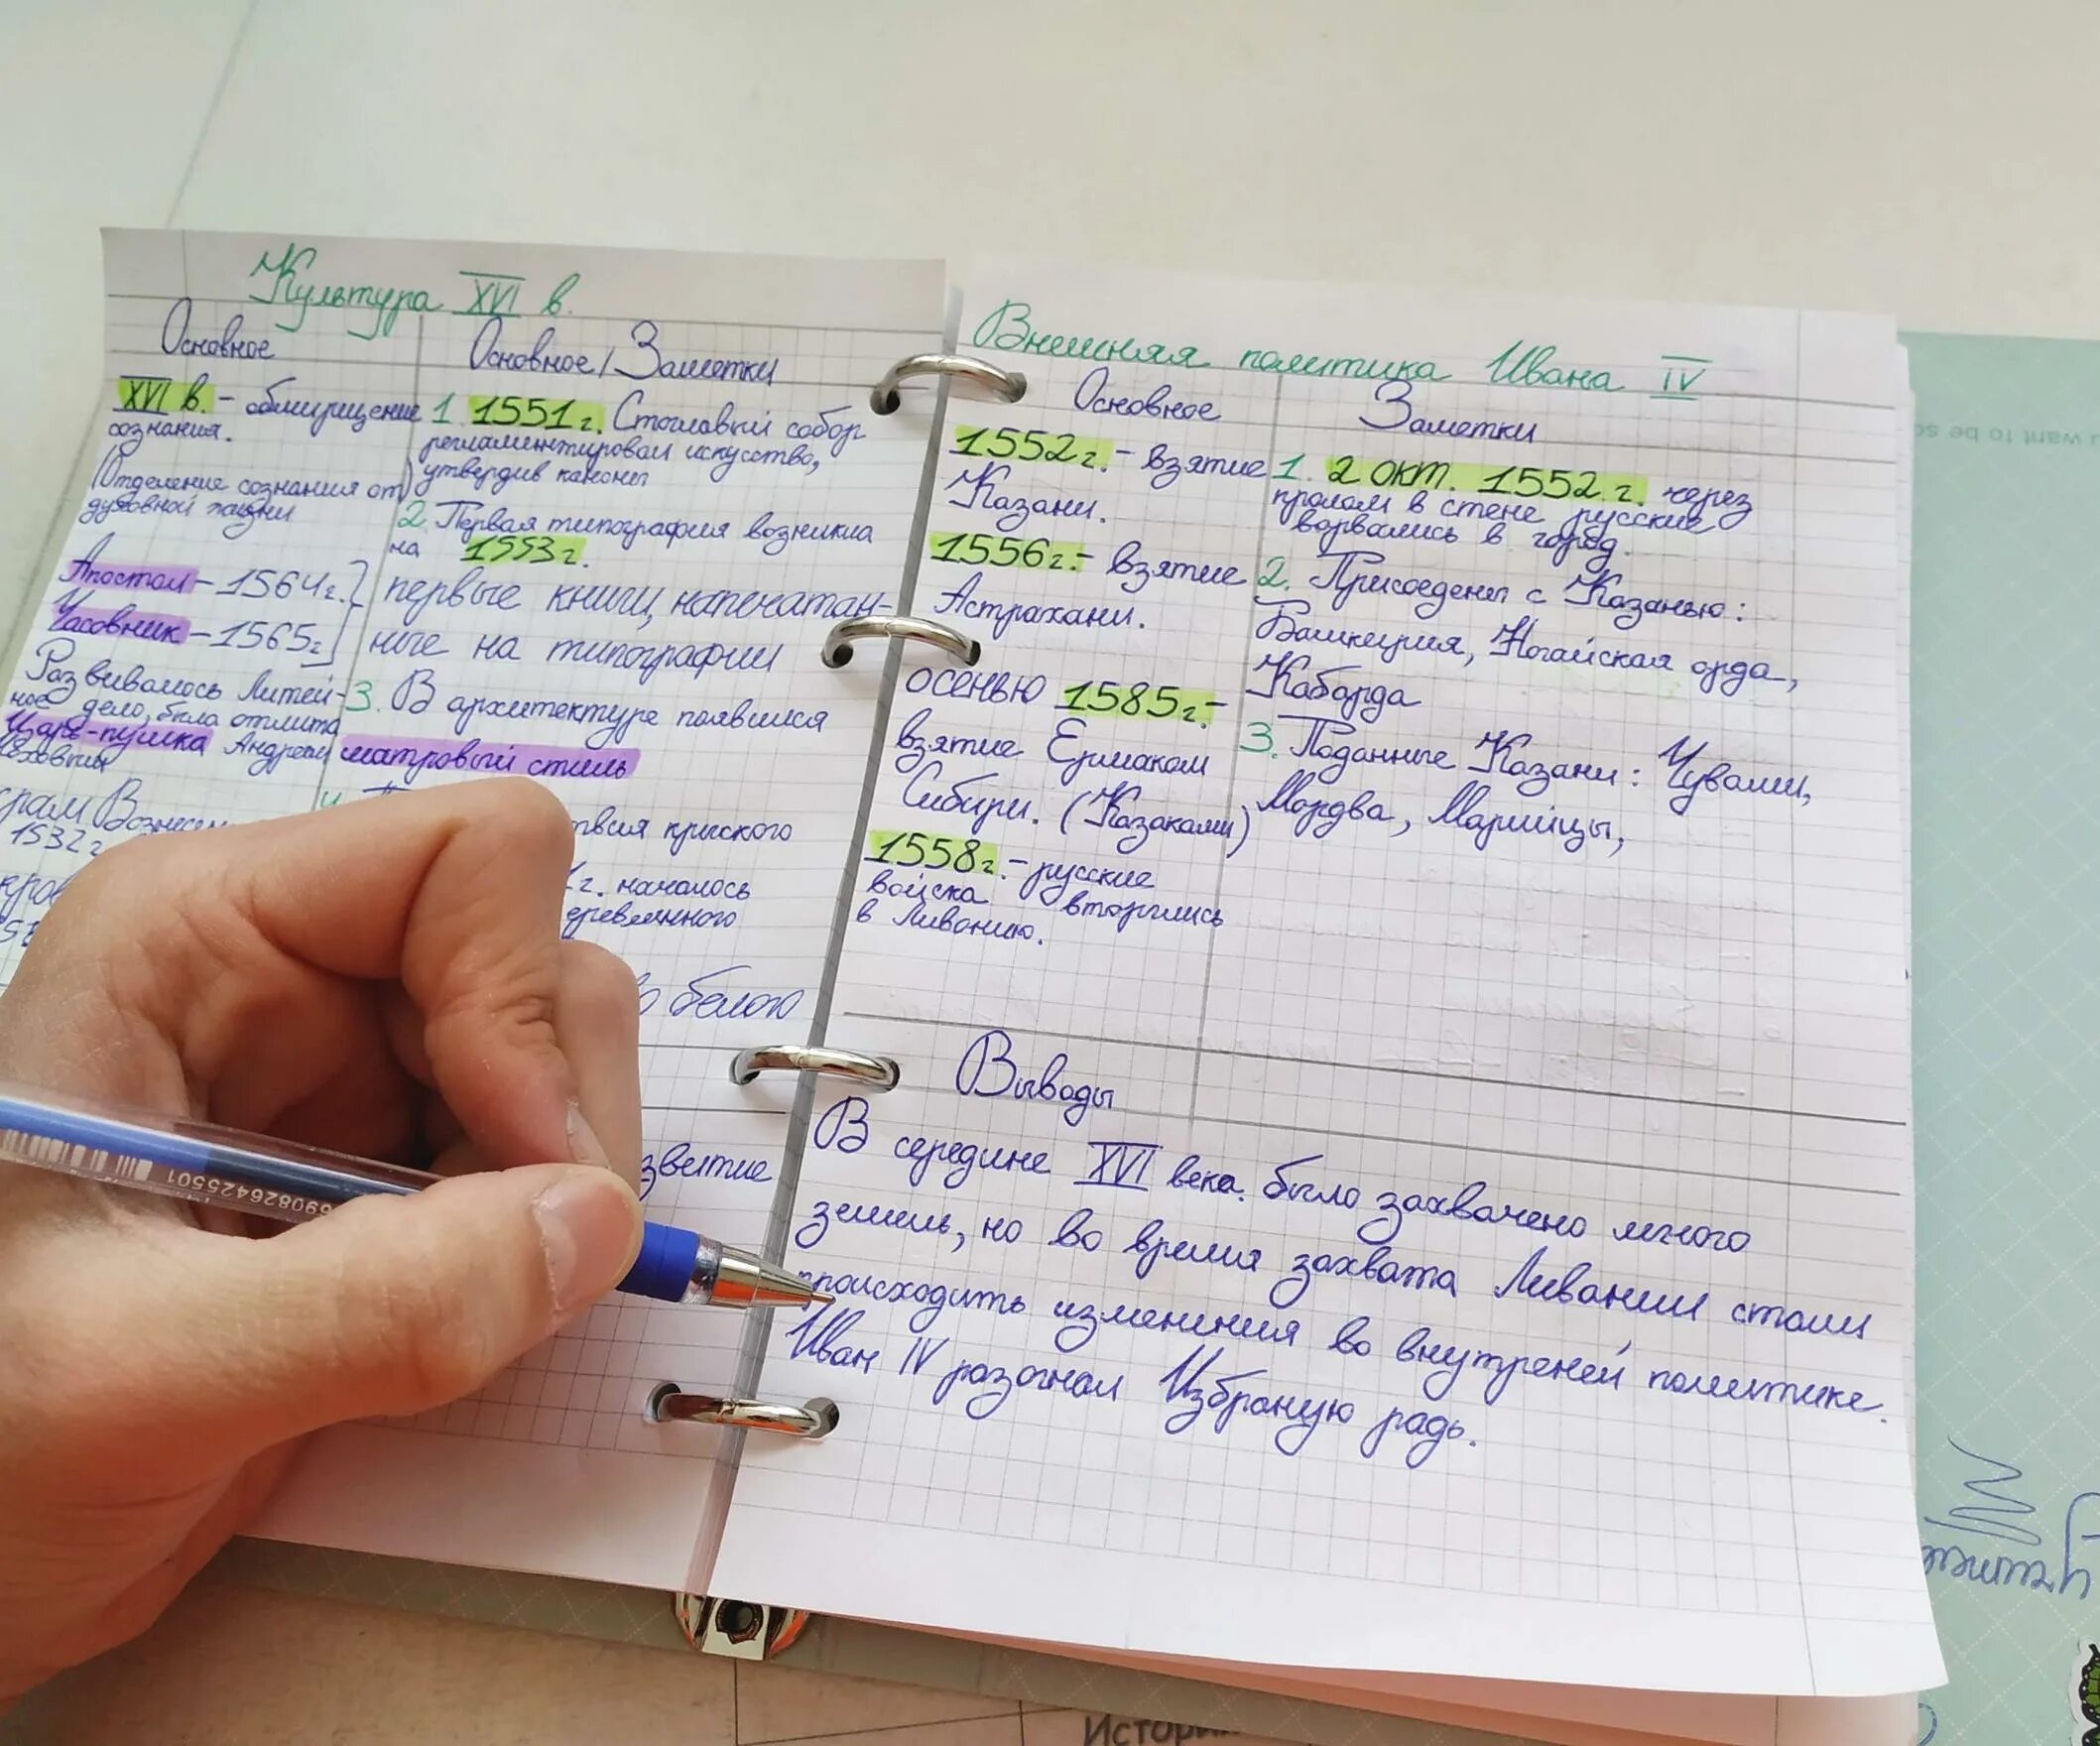 Культура XVI в.
Основное
XVI в. - обмирщение
сознания.
(Отделение сознания от)
духовной жизни
Апостол - 1564г.
Часовник - 1565г
Развивалось Литей-
ное дело, была отлита
Царь-пушка Андреем
Чеховым
храм Вознесен
1532г
Основное/Заметки
1. 1551г. Стоглавый собор
регламентировал искусство,
утвердив каноны
2. Первая типография возникла
на 1553г.
первые книги, напечатан-
ные на типографии
3. В архитектуре появился
шатровый стиль
4.
ствия крымского
г. началось
деревянного
белого
звитие
Внешняя политика Ивана IV
Основное
1552г. - взятие
Казани.
1556г. - взятие
Астрахани.
осенью 1585г. -
взятие Ермаком
Сибири. (Казаками)
1558г. - русские
войска вторглись
в Ливонию.
Заметки
1. 2 окт. 1552г. через
пролом в стене русские
ворвались в город.
2. Присоедены с Казанью:
Башкирия, Ногайская орда,
Кабарда
3. Поданные Казани: Чуваши,
Мордва, Марийцы,
Выводы
В середине XVI века. было захвачено много
земель, но во время захвата Ливонии стали
происходить изменения во внутреней политике.
Иван IV разогнал Избраную радь.
want to be so
Истори